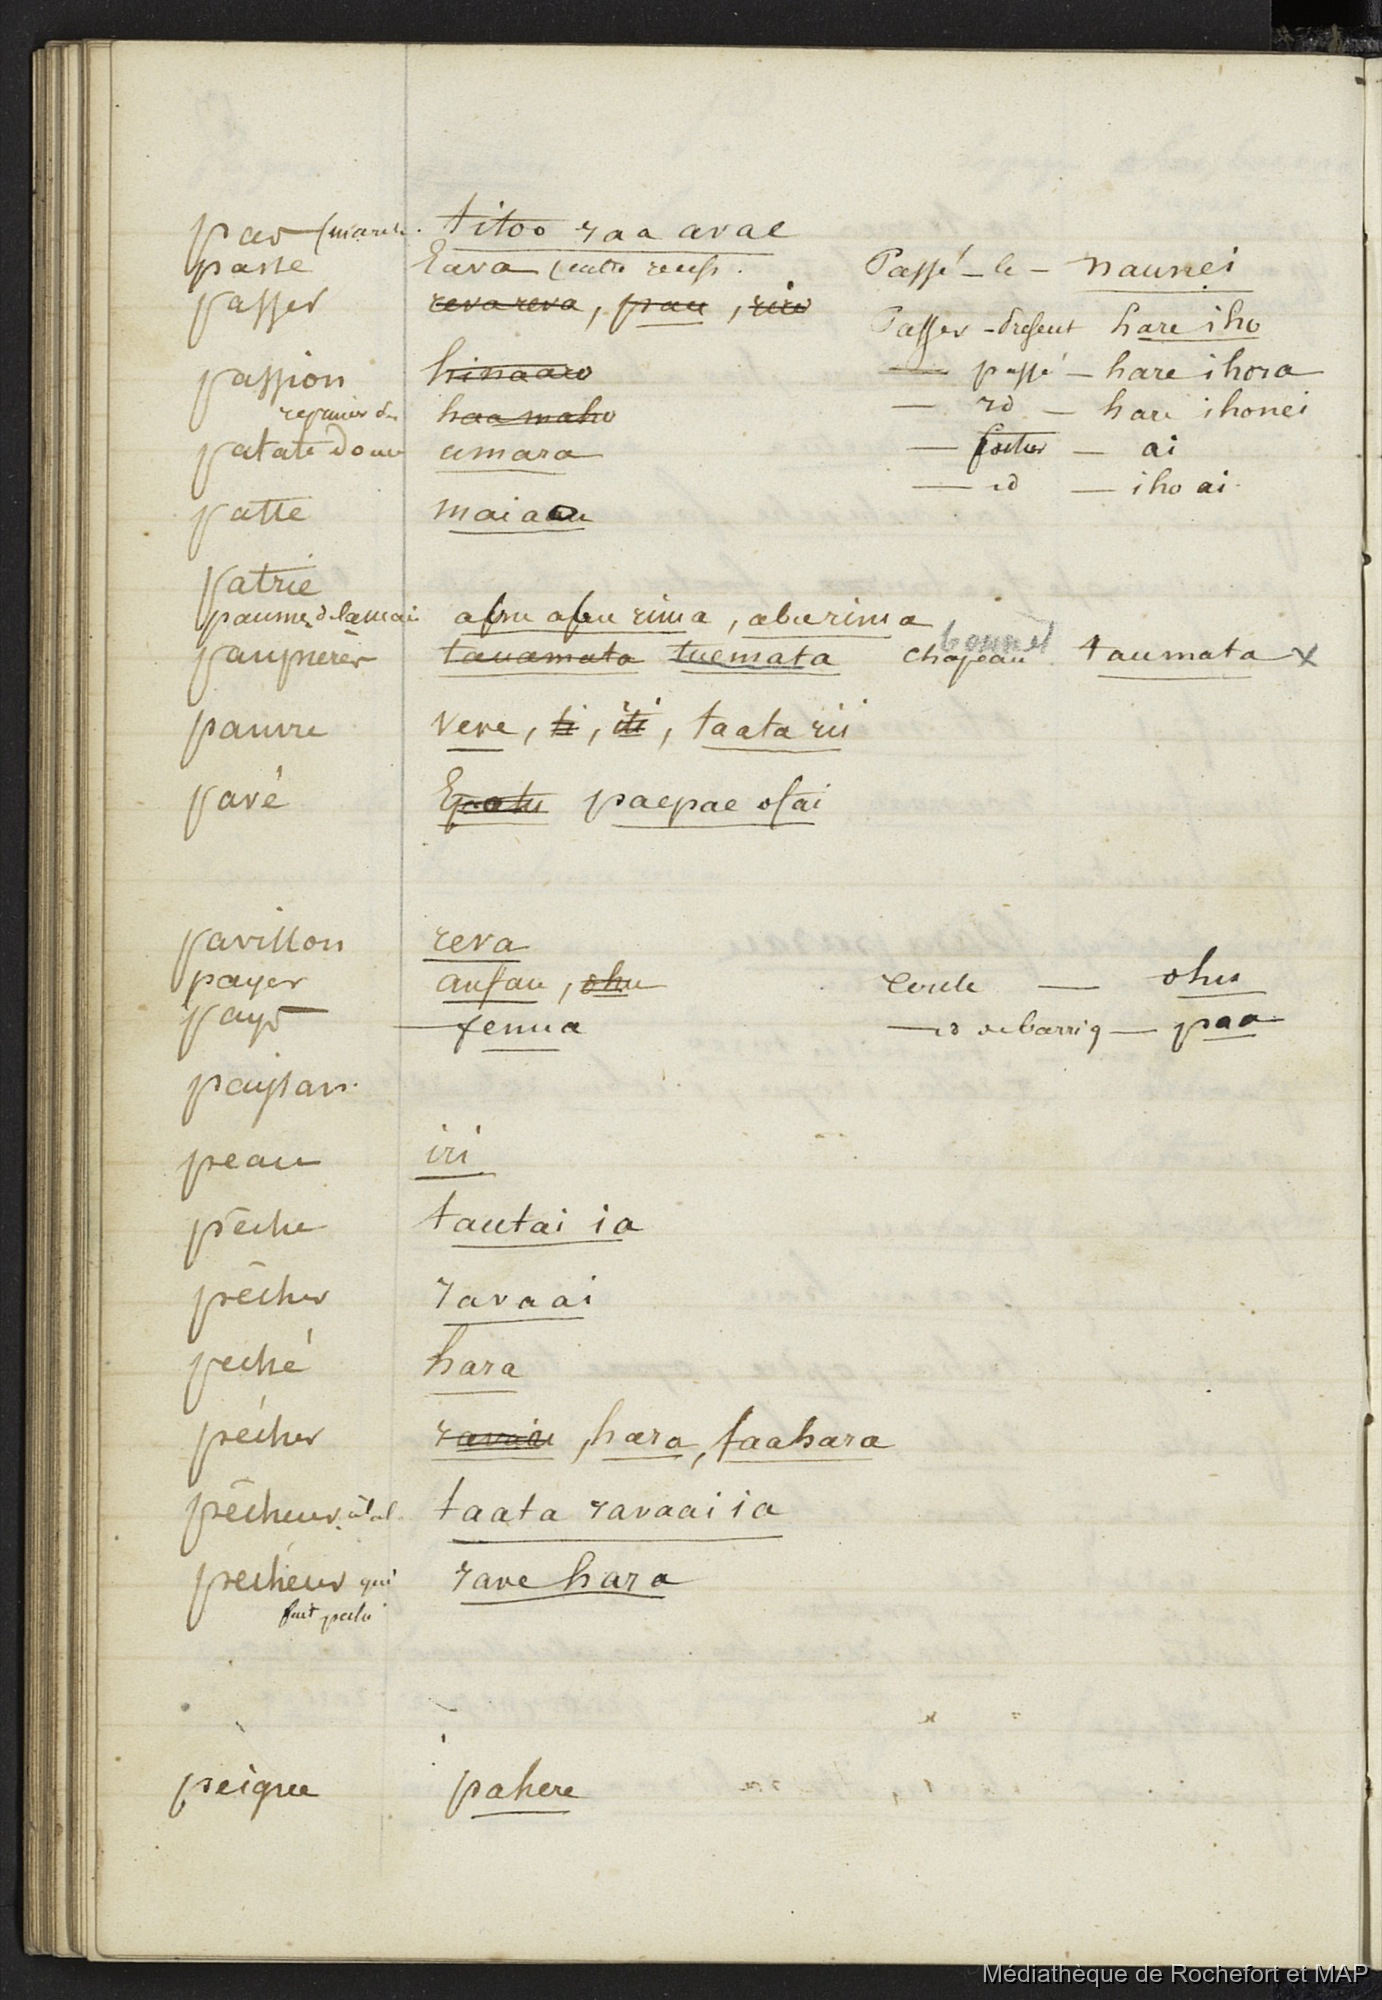 pas (march. titoo raa avae
passe Eava (entre recifs. Passé - le - naunei
passer revareva, pau, riro
Passer - présent hare iho
passion hinaaro — passé - hare ihora
reprimer des haa maha — id - hare ihonei
patate douce umara — futur - ai
— id - iho ai
patte maiaau
patrie
paume de la mai afu afu rima, abu rima
paupières tauamata tuemata chapeau bonnet taumata x
pauvre veve, ti, iti, taata rii
pavé Epatu paepae ofai
pavillon reva
payer aufau, ohu cercle — ohu
pays fenua — id de barriq - paa
paysan
peau iri
pêche tautai ia
pêcher ravaai
peché hara
pécher ravai, hara, faahara
pêcheur à la l. taata ravaai ia
pecheur qui rave hara
fait peché
peigne pahere
Médiathèque de Rochefort et MAP